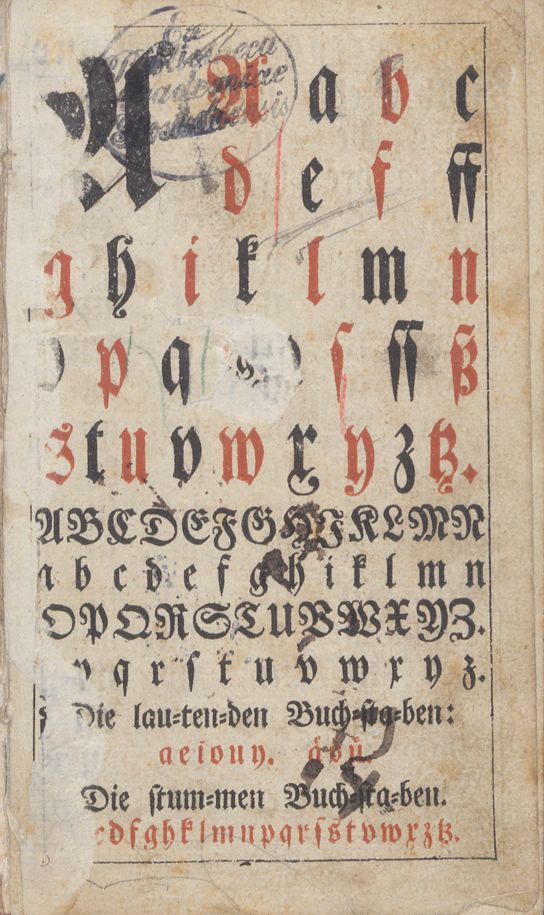 A A a b c
d e f ff
g h i k l m n
p q ſ ſſ ß
s t u v w x y z tz.
A B C D E F G H I K L M N
a b c d e f g h i k l m n
O P Q R S T U V W X Y Z.
q r ſ t u v w x y z.
Die lau⸗ten⸗den Buch⸗ſta⸗ben:
a e i o u y. ä ö ü.
Die ſtum⸗men Buch⸗ſta⸗ben.
c d f g h k l m n p q r ſ s t v w x z tz.